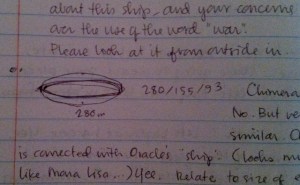 about this ship, and your concerns
over the use of the word "war".
Please look at it from outside in...
280/155/93 Chimera
280 m No. But ve
similar. C
is connected with Oracle's "ship". (looks
like Mona Lisa...) Yes. Relate to size of